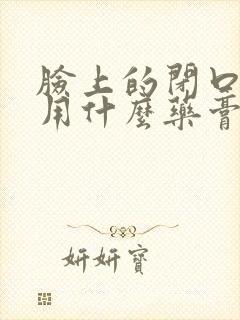 臉上的閉口
用什麼藥膏
妍妍寶